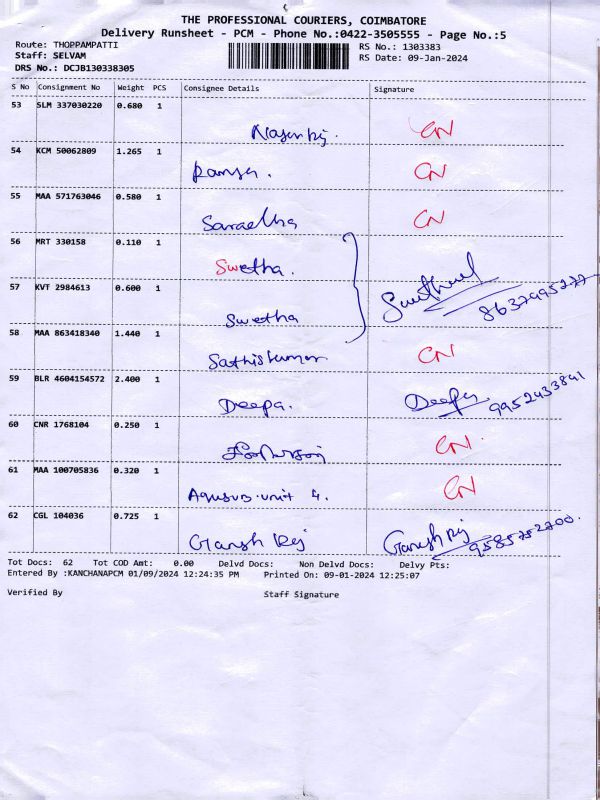 THE PROFESSIONAL COURIERS, COIMBATORE
Delivery Runsheet - PCM - Phone No.:0422-3505555 - Page No.:5
Route: THOPPAMPATTI
Staff: SELVAM
DRS No.: DCJB130338305
RS No.: 1303383
RS Date: 09-Jan-2024
S No Consignment No Weight PCS Consignee Details Signature
53 SLM 337030220 0.680 1
CN
54 KCM 50062809 1.265 1
CN
55 MAA 571763046 0.580 1
CN
56 MRT 330158 0.110 1
Swetha.
57 KVT 2984613 0.600 1
Swetha
8637995277
58 MAA 863418340 1.440 1
Sathiskumar CN
59 BLR 4604154572 2.400 1
Deepa. Deepa 9952433841
60 CNR 1768104 0.250 1
CN
61 MAA 100705836 0.320 1
unit 4. CN
62 CGL 104036 0.725 1
Ganesh Raj Ganesh Raj 9585752700.
Tot Docs: 62 Tot COD Amt: 0.00 Delvd Docs: Non Delvd Docs: Delvy Pts:
Entered By :KANCHANAPCM 01/09/2024 12:24:35 PM Printed On: 09-01-2024 12:25:07
Verified By Staff Signature